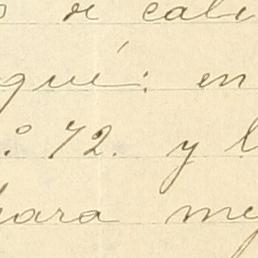 de cali
qué: en
º 72. y l
para me